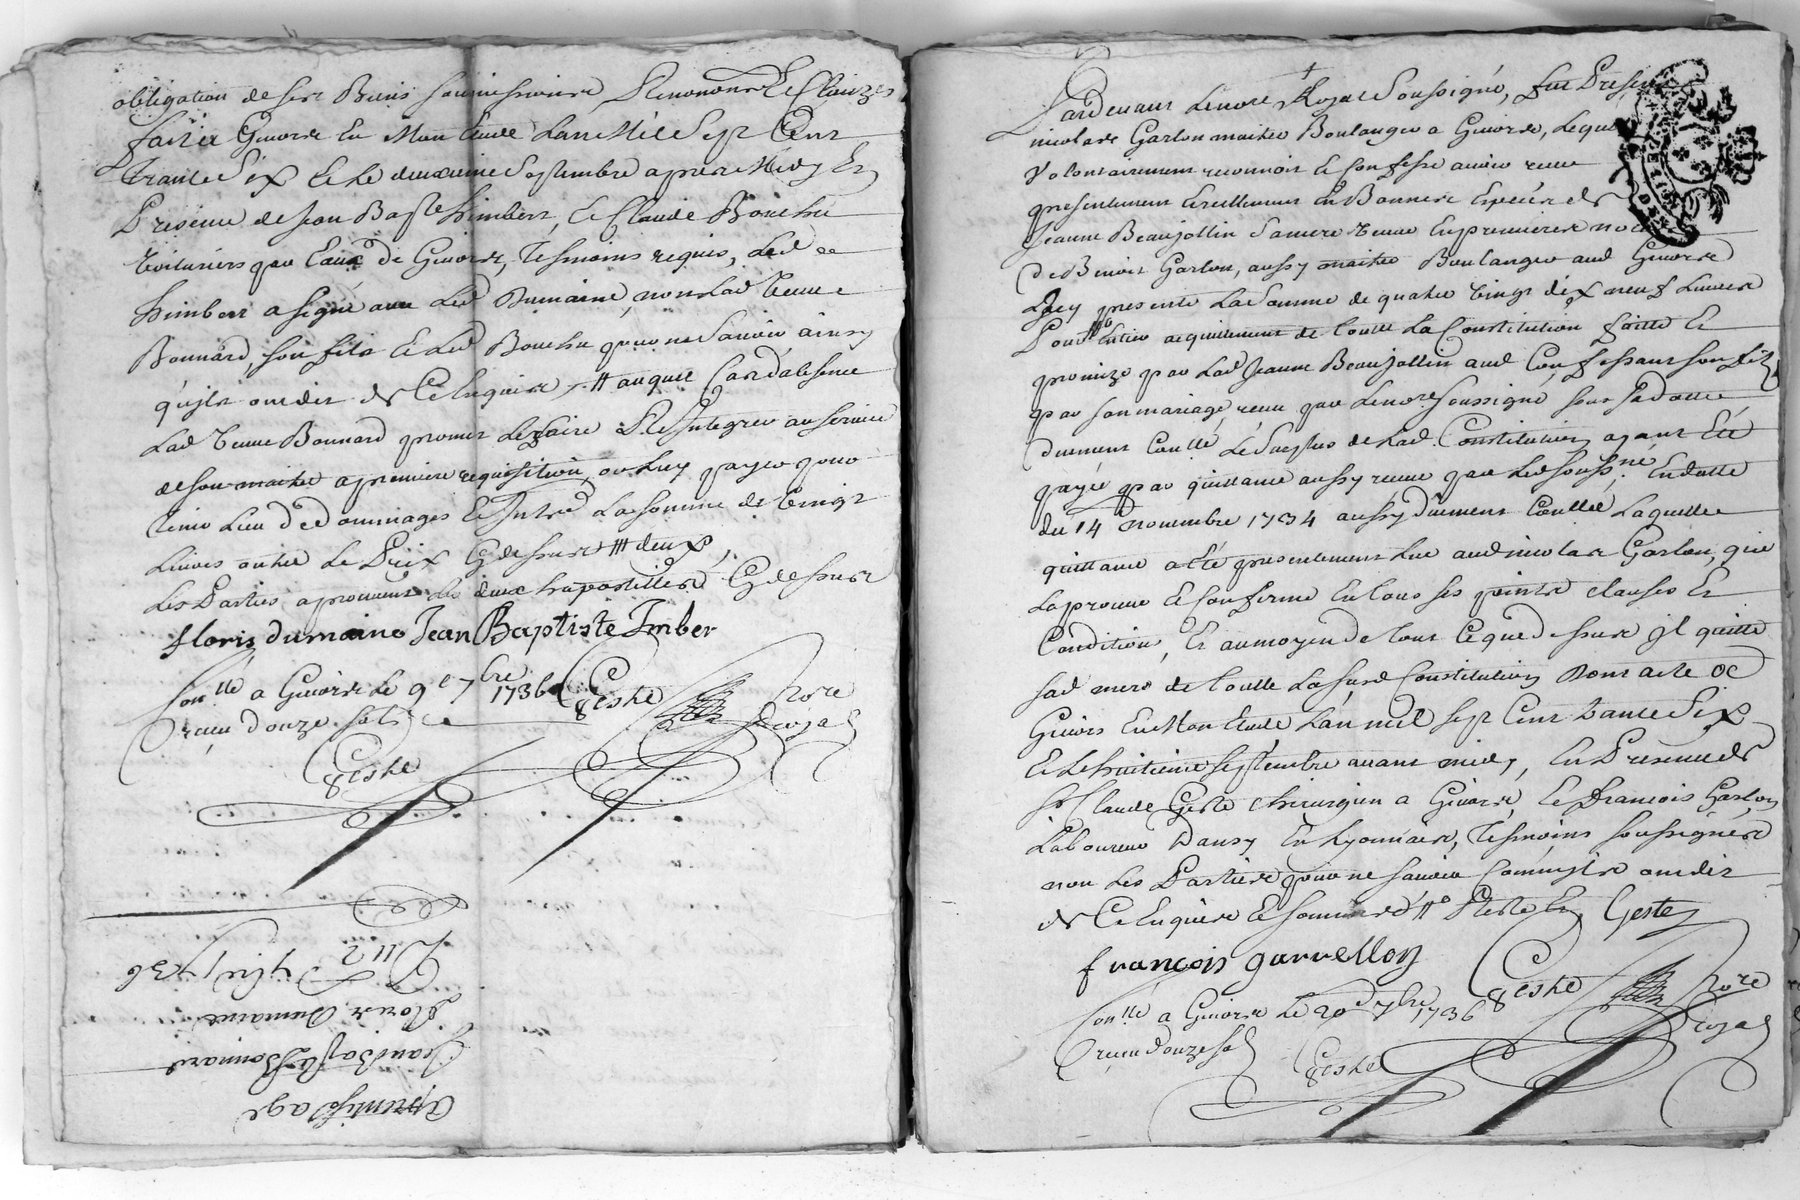 obligation de ses Biens soumissions Renonons Et Clauzes
fait a Givors En Mon Etude L'an Mil Sept Cent
Trante Six Et Le deuxieme Septembre apres Midy En
Presence de Jean Bapte himbert, Et Claude Bouchu
Voituriers par Eaux de Givors, Tesmoins requis, Led
himbert a signé avec Led Dumaine, non Lad Veuve
Bonnard, son fils Et Led Bouchu pour ne Savoir ainsy
quils ont dit de Ce Enquis, # auquel Cas d'absence
Lad Veuve Bonnard promet Le faire Reintegrer au service
de son maitre a premiere requisition, ou Luy payer pour
tenir Lieu de dommages Et Intrd La somme de vingt
Livres outre Le Prix Cy dessus # deux,
Les Parties aprouvent les deux hapostilles Cy dessus
floris dumaine Jean Baptiste Imber
Conllé a Givors Le 9e 7bre 1736
receu douze sols Geste Geste nore Royal
Geste
Pardevant Le nore Royal Soussigné, fut Present
nicolas Garlon maitre Boulanger a Givors, Lequel
Volontairement reconnoit Et Confesse avoir receu
presentement Et reellement En Bonnes Especes de
Jeanne Beaujollin Sa mere veuve En premieres noces
de Benoit Garlon, aussy maitre Boulanger aud Givors
Icy presente La Somme de quatre vingt dix neuf Livres
Pour Entier aquittement de toutte La Constitution faitte Et
promize par Lad Jeanne Beaujollin aud Confessant son fils
par son mariage, receu par Le nore soussigné sous sa datte
duement Conllé, Le Surplus de Lad Constitution ayant Eté
payée par quittance aussy receue par Led soussné En datte
du 14 novembre 1734 aussy duement Conllée Laquelle
quittance a Eté presentement Lue aud nicolas Garlon, qui
L'aprouve Et Confirme En tous ses points clauses Et
Condition, Et au moyen de tout Ce que dessus Il quitte
sad mere de toutte La susd Constitution Dont acte a
Givors En Mon Etude L'an mil sept Cent Trante Six
Et Le huitieme septembre avant midy, En Presence de
Sr Claude Geste chirurgien a Givors, Et francois Garlon
Laboureur En Lyonnois, Tesmoins soussignés
non Les Parties pour ne savoir Comm'Ils ont dit
de Ce Enquis Et Sommés Geste
francois garrellon
Conllé a Givors Le 20 7bre 1736 Geste nore Royal
receu douze sols
Geste
Du 2 7bre 1736
floris Dumaine
Jean Bapte Bonnard
Aprentissage